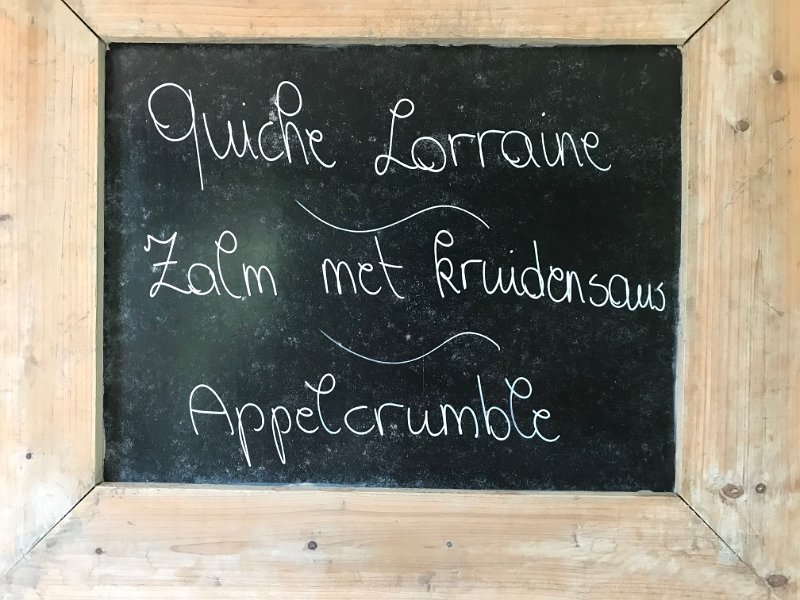 Quiche Lorraine
Zalm met kruidensaus
Appelcrumble